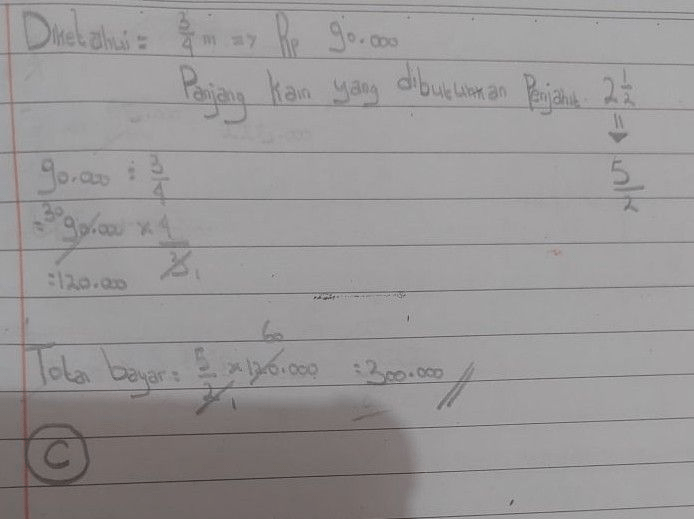 Diketahui = 3/4 m => Rp 90.000
Panjang kain yang dibutuhkan Penjahit 2 1/2
=
5/2
90.000 : 3/4
= 30 90.000 × 4/3 1
= 120.000
60
Total bayar = 5/2 × 120.000 = 300.000 //
1
C